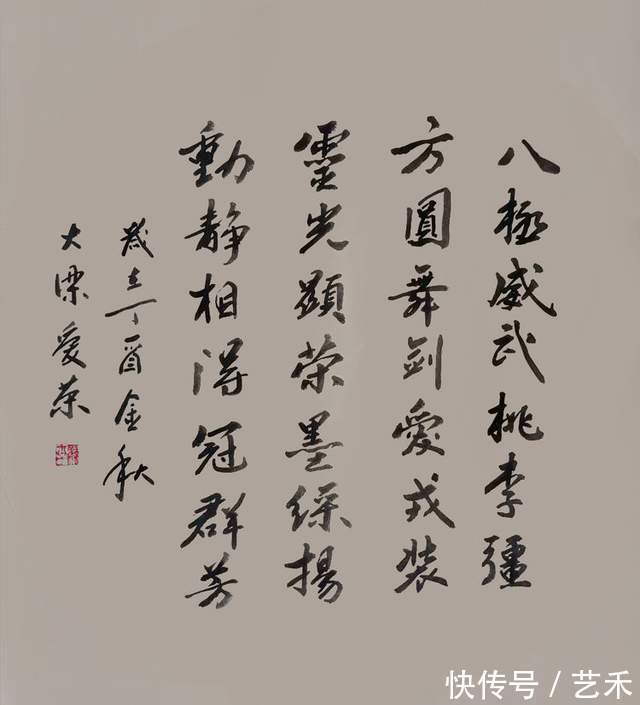 八極威武桃李疆
方圓舞劍愛戎裝
靈光顯榮墨綵揚
動靜相得冠群芳
歲在丁酉金秋
大梁愛榮
快传号／艺禾